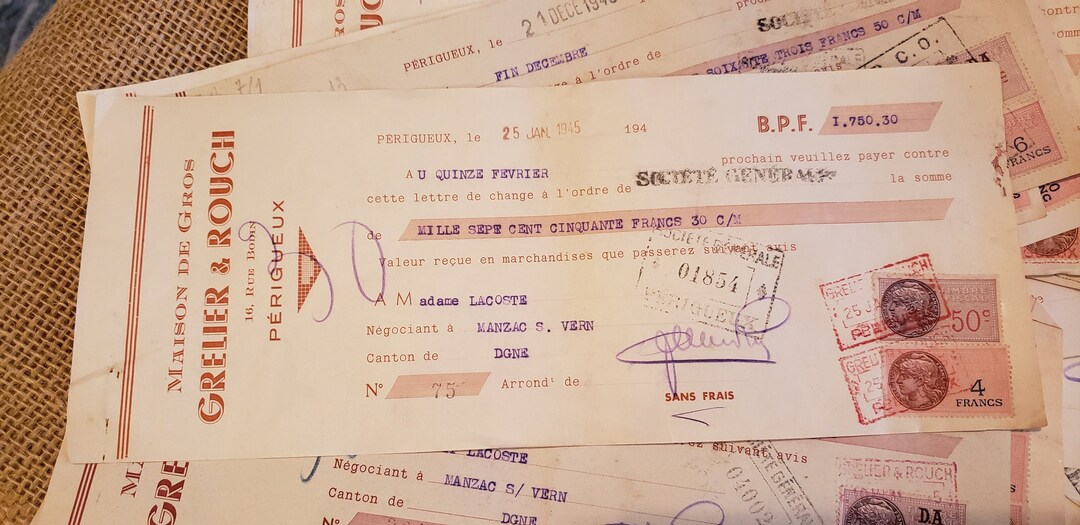 PÉRIGUEUX, le 21 DECE 194
FIN DECEMBRE
change à l'ordre de
TROIS FRANCS 50 C/M
C. O.
6
FRANCS
MAISON DE GROS
GRELIER & ROUCH
16, RUE BODIN
PÉRIGUEUX
PÉRIGUEUX, le 25 JAN. 1945 194
B.P.F. I.750.30
AU QUINZE FEVRIER prochain veuillez payer contre
cette lettre de change à l'ordre de SOCIÉTÉ GÉNÉRALE la somme
de MILLE SEPT CENT CINQUANTE FRANCS 30 C/M
Valeur reçue en marchandises que passerez suivant avis
SOCIÉTÉ GÉNÉRALE
01854
PÉRIGUEUX
A Madame LACOSTE
Négociant à MANZAC S. VERN
Canton de DGNE
N° 75 Arrondt de
SANS FRAIS
TIMBRE
FISCAL
50c
4
FRANCS
suivant avis
LACOSTE
Négociant à MANZAC S/ VERN
Canton de DGNE
N°
GÉNÉRALE
GRELIER & ROUCH
DA